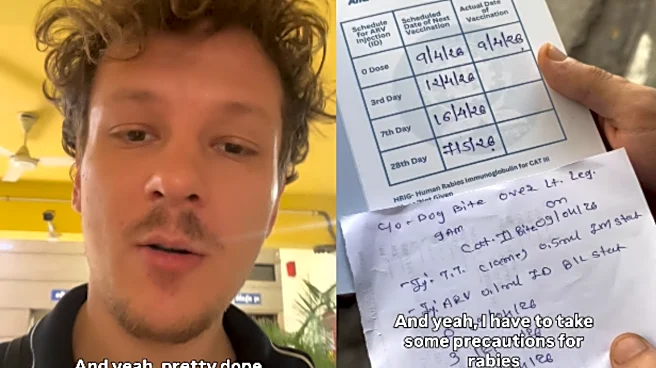 And yeah, pretty dope
Schedule for ARV Injection (ID)
Scheduled Date of Next Vaccination
Actual Date of Vaccination
0 Dose 9/4/26 9/4/26
3rd Day 12/4/26
7th Day 16/4/26
28th Day 7/5/26
HRIG- Human Rabies Immunoglobulin for CAT III
Given
C/o- Dog Bite over Lt. Leg.
9AM on
Cat. II Bite 09/04/26
- Inj: T.T. 0.5ml IM stat
- Inj: ARV 0.1ml ID B/L stat
And yeah, I have to take
some precautions for
rabies